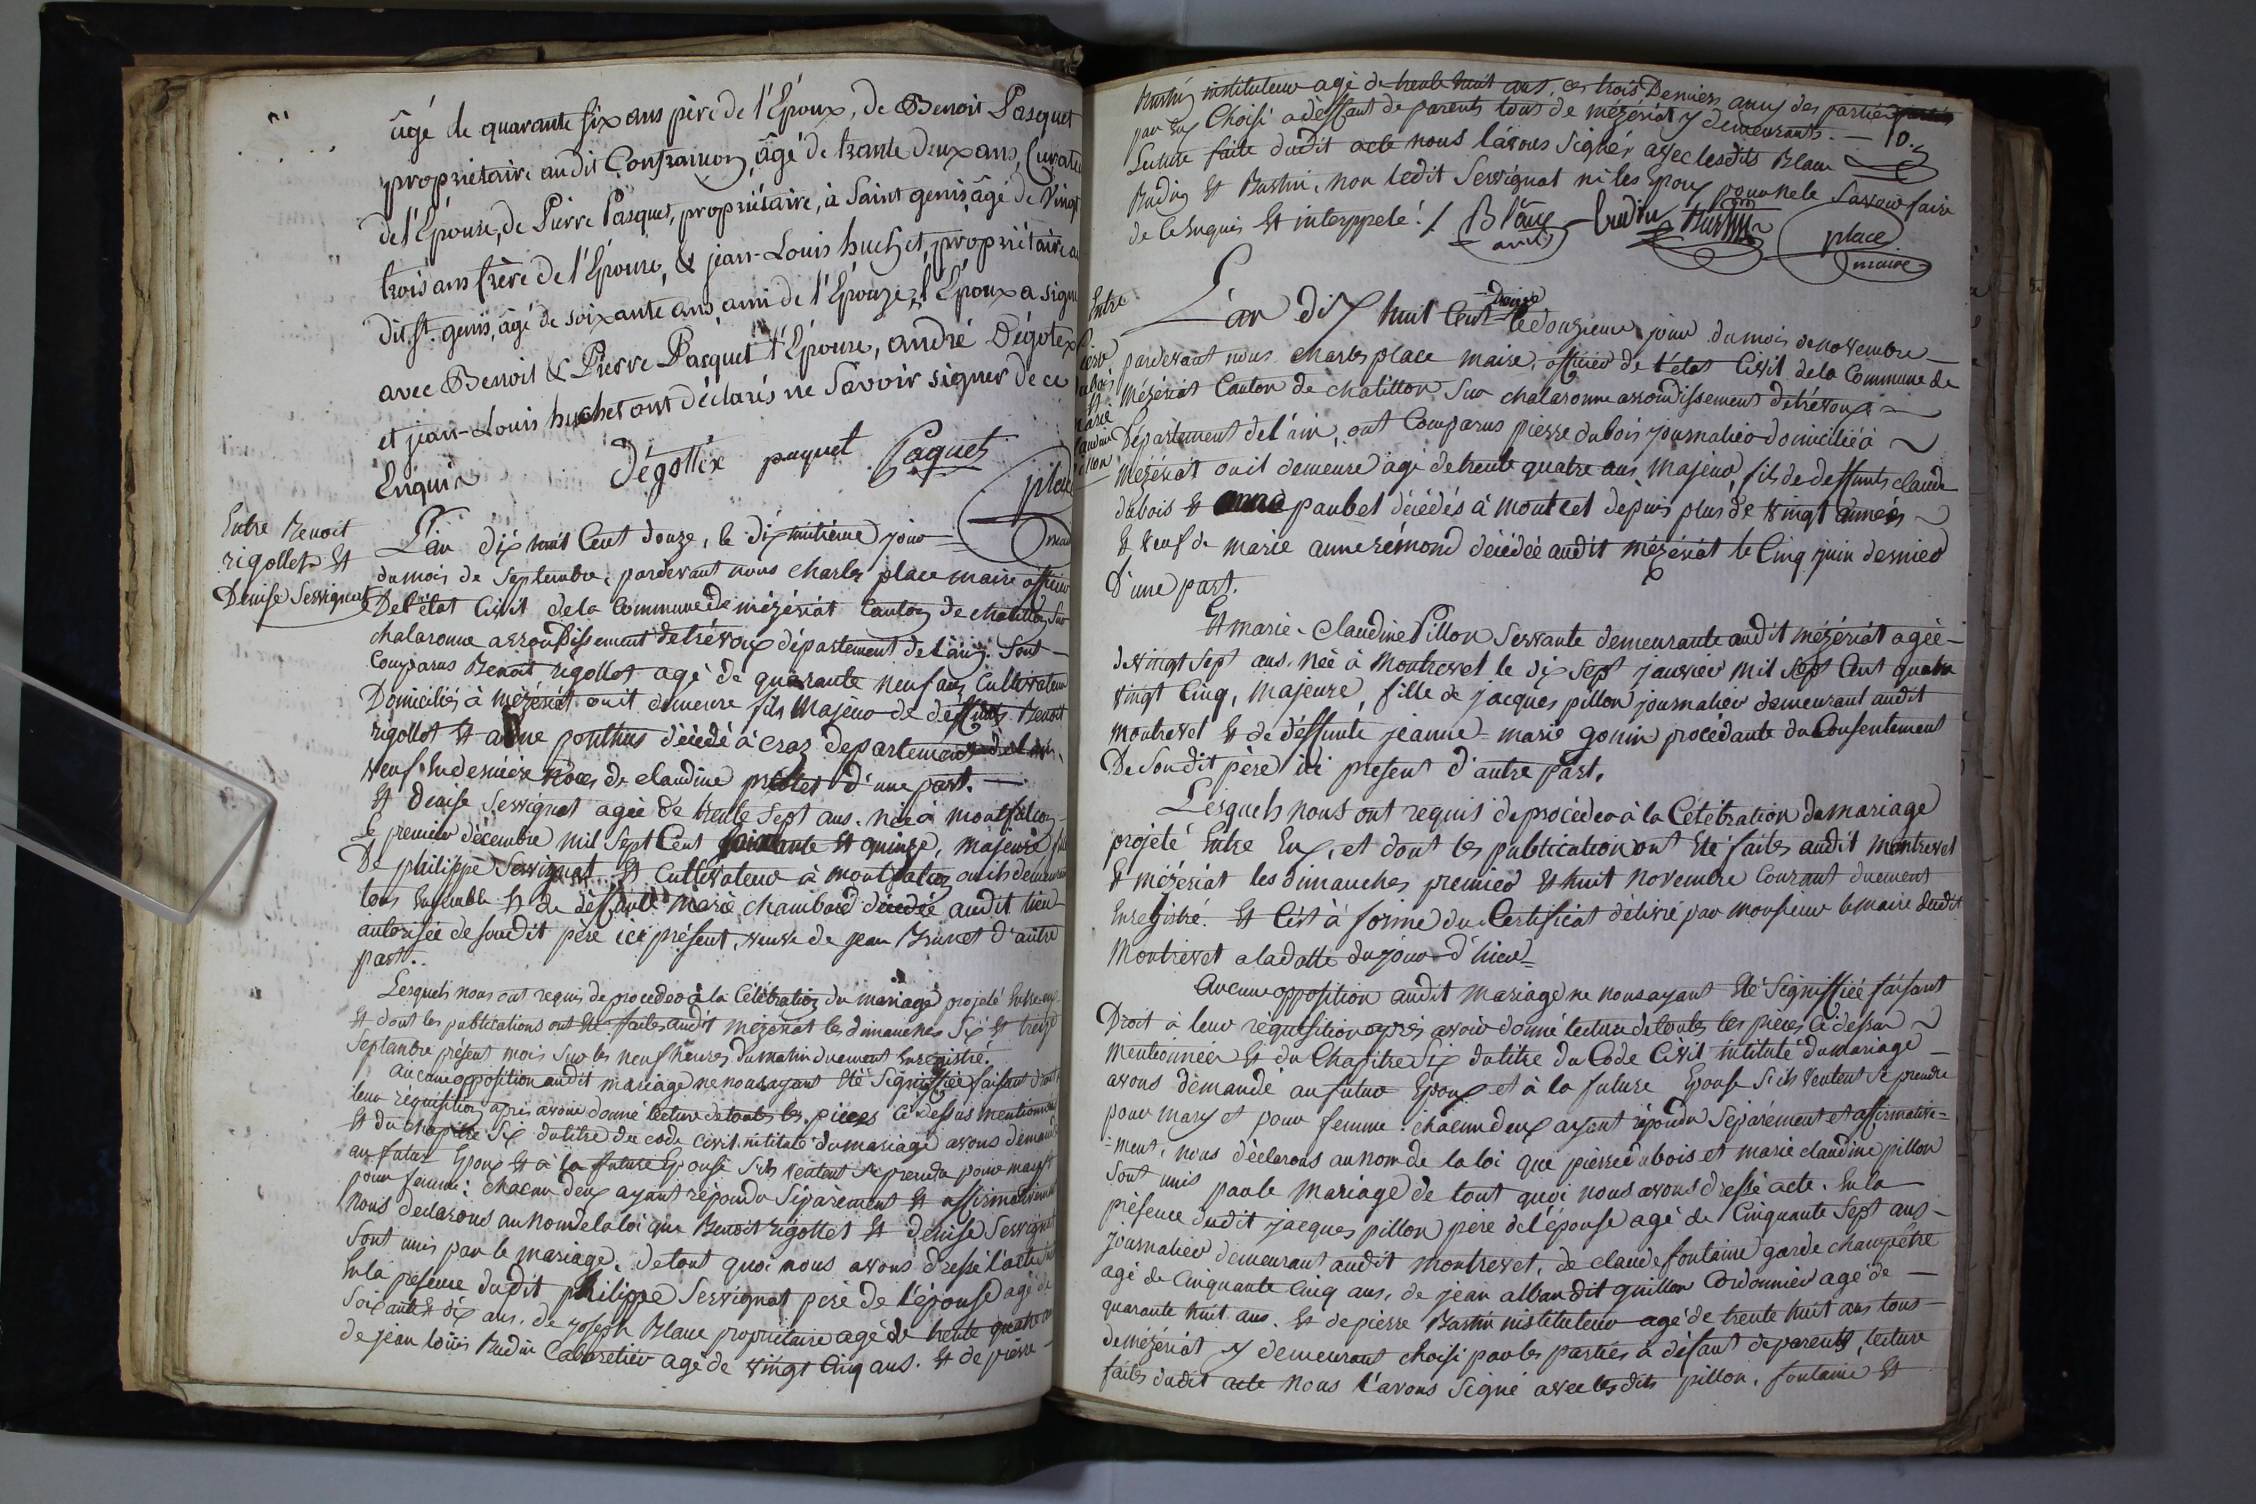 âgé de quarante six ans père de l'Epoux, de Benoit Pasquet
propriétaire audit Confrançon, âgé de trante deux ans, Curateur
de l'Epouse, de Pierre Pasquet, propriétaire, à Saint genis, âgé de Vingt
trois ans frère de l'Epouse, & jean-Louis huchet, propriétaire au
dit St. genis, âgé de soixante ans, ami de l'Epouze, l'Epoux a signé
avec Benoit & Pierre Pasquet l'Epouse, andré Dégotex
et jean-Louis huchet ont déclarés ne Savoir signer de ce
Enquis
Dégottex paquet Paquet
place
maire
Entre Benoit
rigollet Et
Denise Servignat
L'an dix huit Cent douze, le dix huitième jour
du mois de Septembre, pardevant nous charles place maire officier
De l'état Civil de la Commune de mézériat Canton de chatillon Sur
chalaronne arrondissement de trévoux département de l'ain. Sont
Comparus Benoit rigollet agé de quarante neuf ans Cultivateur
Domiciliés à mézériat ou it demeure fils Majeur de deffunts Benoit
rigollet Et anne ponthus décédé à cras departement de l'ain,
veuf En dernière Noces de claudine d'une part.
Et denise Servignat agée de trente Sept ans. née à montfalcon
Le premier décembre mil Sept Cent Soixante Et quinze, majeure fille
De philippe Servignat Et Cultivateur à montfalcon ou ils demeurent
tous Ensemble Et de deffunte Marie chambard décédée audit lieu
autorisée de Soudit père ici présent, veuve de jean Brunet d'autre
part.
Lesquels nous ont requis de proceder à la Célébration du mariage projeté Entre eux
Et dont les publications ont Eté faites audit mézériat les dimanches Six Et treize
Septembre présent mois Sur les neuf heures du matin duement Enregistré.
aucune opposition audit mariage ne nous ayant Eté Signiffiée faisant droit à
leur réquisition après avoir donné lecture de toutes les pièces Ci dessus mentionnées
Et du chapitre Six du titre du code civil intitulé du mariage avons demandé
au futur Epoux Et à la future Epouse S'ils veulent Se prendre pour mary Et
pour femme: chacun deux ayant répondu Séparement Et affirmativement
Nous declarons au nom de la loi que Benoit Rigollet Et denise Servignat
Sont unis par le mariage, de tout quoi nous avons dressé l'acte
En la présence dudit philippe Servignat père de l'épouse agé de
Soixante Et dix ans, de joseph Blanc propriétaire agé de trente quatre ans
de jean louis Budin Cabaretier agé de vingt Cinq ans. Et de pierre
Bastin instituteur agé de trente huit ans, ces trois Derniers amys des parties
par Eux Choisi a deffaut de parents tous de mézériat y demeurants. —
Lecture faite dudit acte nous l'avons Signér avec lesdits Blanc
Budin Et Bastin, non ledit Servignat ni les Epoux pour ne le Savoir faire
de Ce Enquis Et interppelé ./.
Blanc
budin Bastin
place
maire
Entre
pierre
dubois
Et
marie
claudine
pillon
L'an dix huit Cent Douze le douzieme jour du mois de novembre
pardevant nous charles place maire, officier de l'état Civil de la Commune de
mézériat Canton de chatillon Sur chalaronne arrondissement de trévoux
Département de l'ain, ont Comparus pierre dubois journalier domicilié à
Mézériat ou il demeure agé de trente quatre ans, Majeur, fils de deffunts claude
dubois Et anne paubel décédés à montcet depuis plus de vingt années
Et veuf de marie anne rémond décédée audit mézériat le Cinq juin dernier
D'une part.
Et marie-Claudine Pillon Servante demeurante audit mézériat agée
de Vingt Sept ans, née à Montrevet le dix Sept janvier mil Sept Cent quatre
vingt Cinq, Majeure, fille de jacques pillon journalier demeurant audit
montrevet Et de déffunte jeanne-marie gonin procédante du Consentement
De Son dit père ici present d'autre part.
Lesquels nous ont requis de procéder à la Célébration du mariage
projeté Entre Eux, et dont les publication ont Eté faites audit montrevet
Et mézériat les dimanches premier Et huit Novembre Courant duement
Enregistré. Et C'est à forme du Certificat délivré par monsieur le maire dudit
Montrevet a la datte du jour d'hier.
Aucune opposition audit Mariage ne nous ayant Eté Signiffiée faisant
Droit à leur réquisition après avoir donné lecture de toutes les pièces Ci dessus
mentionnées Et du Chapitre Six du titre du Code Civil intitulé du mariage
avons demandé au futur Epoux et à la future Epouse Si ils veulent Se prendre
pour mary et pour femme: chacun deux ayant répondu Séparément et affirmative=
=ment, nous déclarons au nom de la loi que pierre dubois et marie claudine pillon
Sont unis par le Mariage de tout quoi nous avons dressé acte. En la
présence dudit jacques pillon père de l'épouse agé de Cinquante Sept ans
journalier demeurant audit montrevet, de claude fontaine garde champêtre
agé de Cinquante Cinq ans, de jean alban dit guillon Cordonnier agé de
quarante huit ans. Et de pierre Bastin instituteur agé de trente huit ans tous
de mézériat y demeurant choisi par les parties à défaut de parents, lecture
faites dudit acte Nous l'avons Signé avec lesdits pillon, fontaine Et